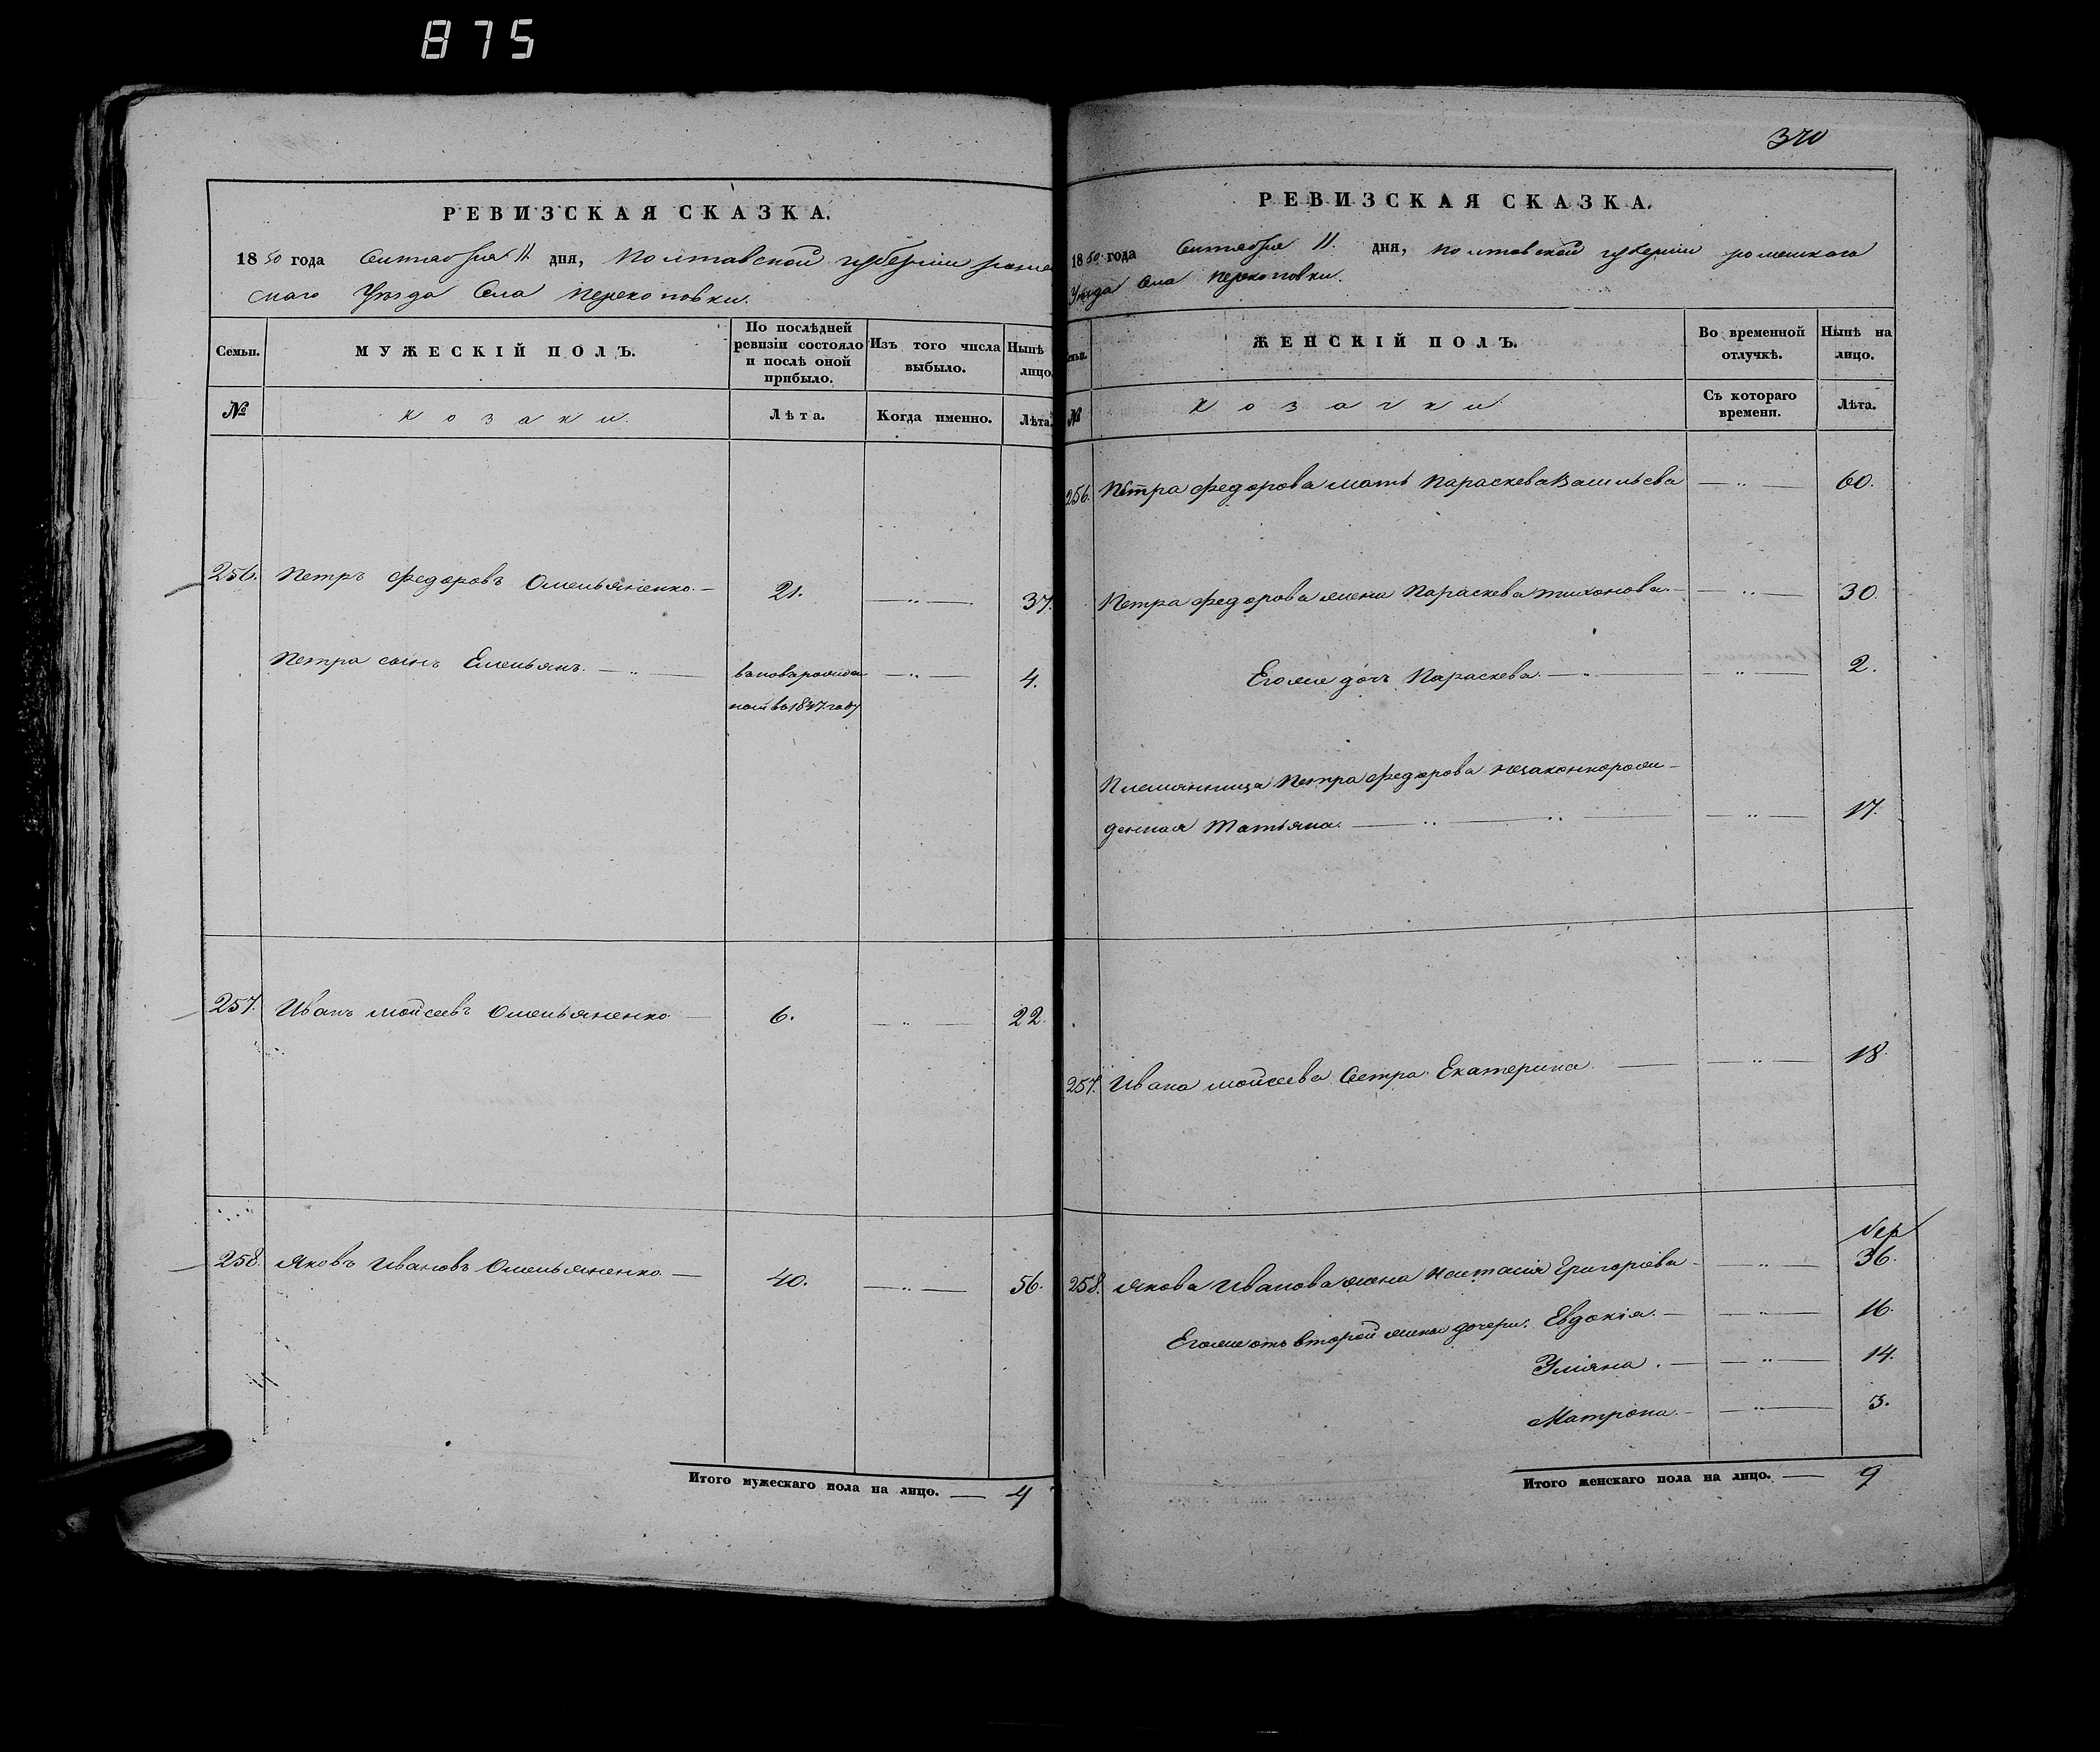 875
РЕВИЗСКАЯ СКАЗКА.
1850 года Сентября 11 дня, Полтавской губернии роме
скаго Уезда Села Перекоповки.
Семьи.
МУЖЕСКІЙ ПОЛЪ.
По послѣдней ревизіи состояло и послѣ оной прибыло.
Изъ того числа выбыло.
Нынѣ лицо.
№
Козаки.
Лѣта.
Когда именно.
Лѣта.
256. Петръ Федоровъ Омельяненко. 21. 37.
Петра сынъ Емельянъ. 4.
257. Иванъ Мойсеевъ Омельяненко 6. 22.
258. Яковъ Ивановъ Омельяненко. 40. 56.
Итого мужескаго пола на лицо. 4
370
РЕВИЗСКАЯ СКАЗКА.
1850 года Сентября 11. дня, Полтавской губерніи роменскаго
Уезда Села Перекоповки.
ЖЕНСКІЙ ПОЛЪ.
Во временной отлучкѣ.
Нынѣ на лицо.
№
Козачки
Съ котораго времени.
Лѣта.
256. Петра Федорова мать Параскева Васильева 60.
Петра Федорова жена Параскева Тихонова. 30.
Егоже дочь Параскева. 2.
Племянница Петра Федорова незаконнорож-
денная Татьяна. 17.
257. Ивана Мойсеева Сестра Екатерина 18.
258. Якова Иванова жена Настасія Григоріева 36.
Егоже отъ второй жены дочери: Евдокія. 16.
Уліяна. 14.
Матрона. 3.
Итого женскаго пола на лицо. 9